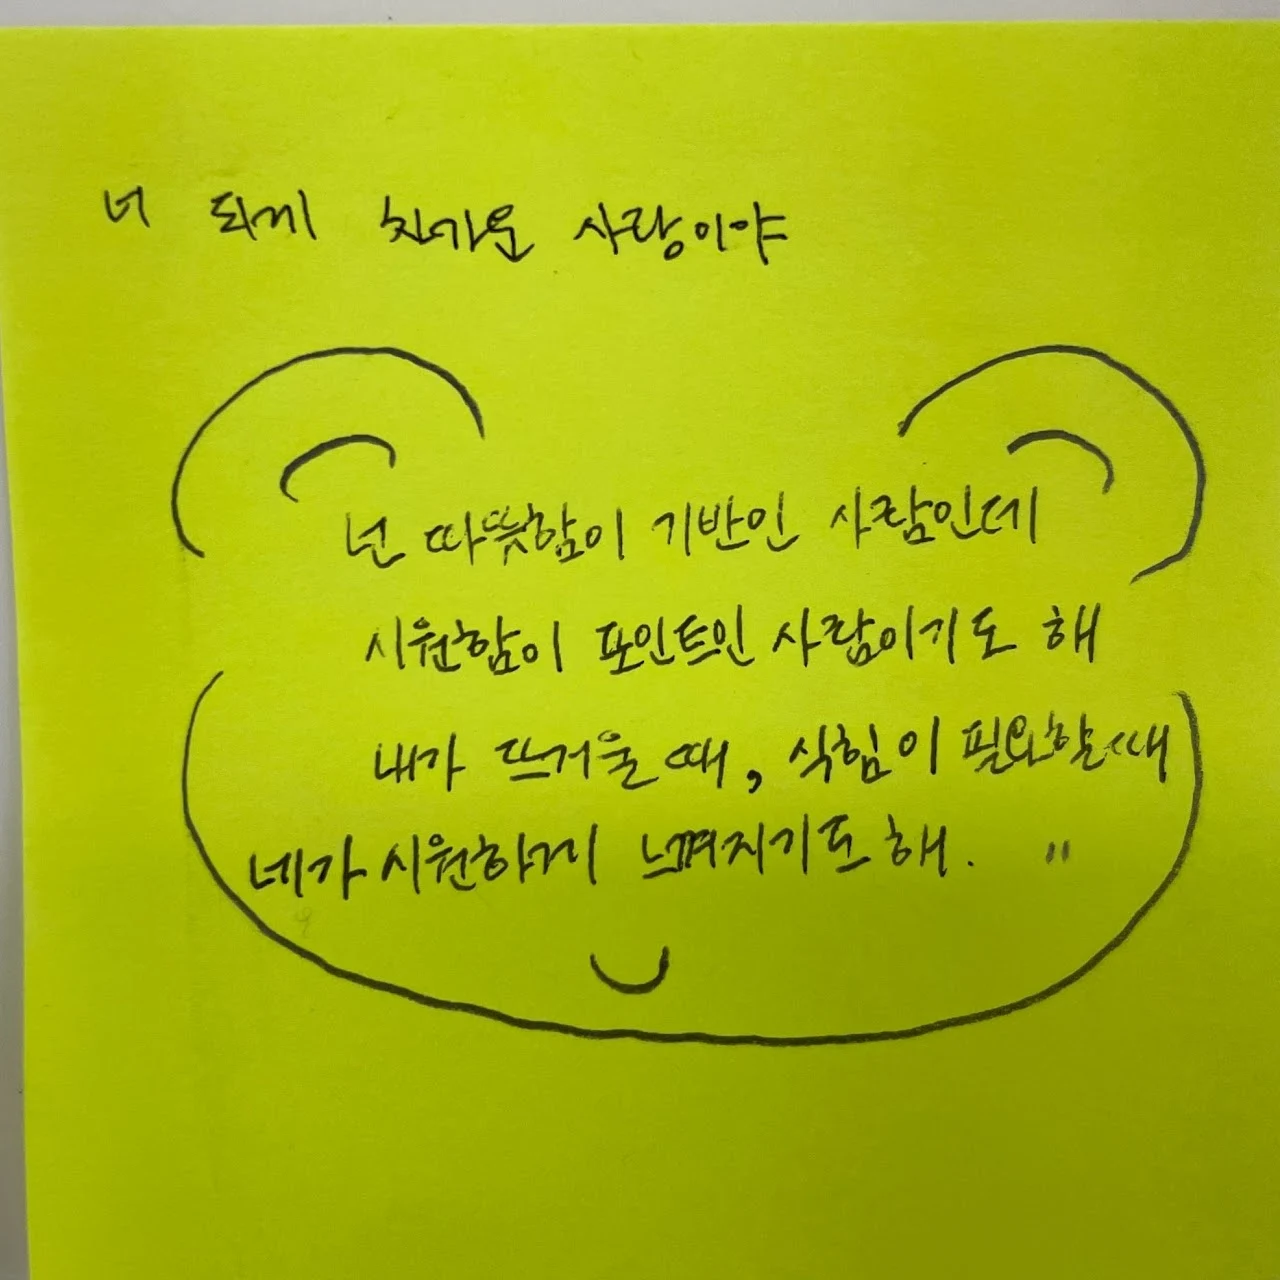 너 되게 차가운 사람이야
넌 따뜻함이 기반인 사람인데
시원함이 포인트인 사람이기도 해
내가 뜨거울 때, 식힘이 필요할때
네가 시원하게 느껴지기도 해.